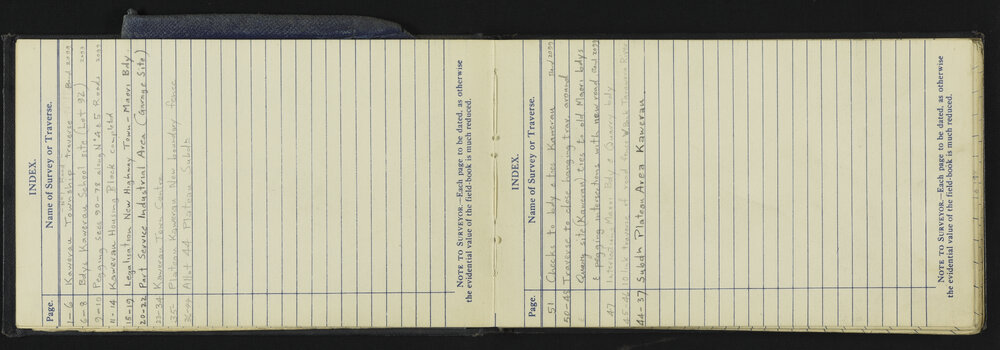 INDEX.
Page. Name of Survey or Traverse.
1-6 Kawerau Township traverse Red 2099
6-8 Bdys Kawerau School site (Lot 92) 2099
9-10 Pegging Secs 90-78 along Nº 4 & 5 Roads 2099
11-14 Kawerau Housing Block completed
15-19 Legalisation New Highway Town - Maori Bdy
20-22 Part Service Industrial Area (Garage Site)
23-34 Kawerau Town Centre
35- Plateau Kawerau New boundary fence
Allot 44 Plateau Subdn
NOTE TO SURVEYOR.—Each page to be dated, as otherwise
the evidential value of the field-book is much reduced.
INDEX.
Page. Name of Survey or Traverse.
51 Checks to bdy & ties Kawerau Red 2099
50-48 Traverse to close hanging trav. around
Quarry site (Kawerau) ties to old Maori bdys
& pegging intersections with new road Red 2099
47 Interlocking Maori Bdy & Quarry bdy
45-46 10 link traverse of road fence W Bank Tarawera River
44-37 Subdn Plateau Area Kawerau
NOTE TO SURVEYOR.—Each page to be dated, as otherwise
the evidential value of the field-book is much reduced.